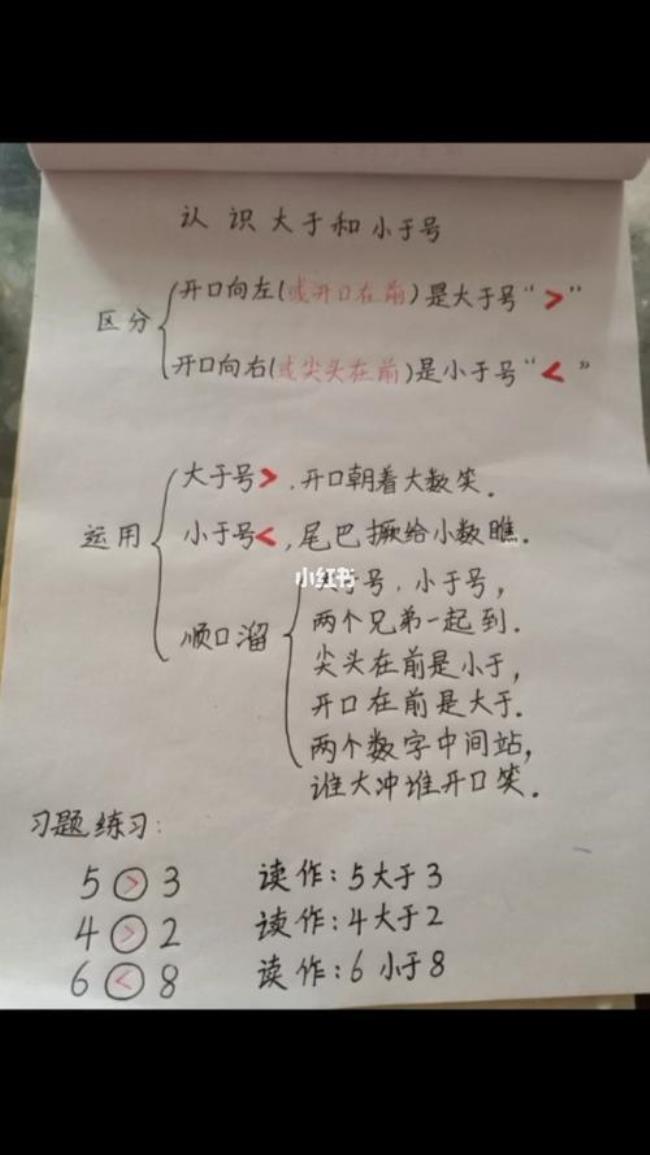 认识大于和小于号
区分
开口向左(或开口在前)是大于号“>”
开口向右(或尖头在前)是小于号“<”
运用
大于号>,开口朝着大数笑.
小于号<,尾巴撅给小数瞧.
顺口溜
于号,小于号,
两个兄弟一起到.
尖头在前是小于,
开口在前是大于.
两个数字中间站,
谁大冲谁开口笑.
小红书
习题练习:
5 > 3 读作:5大于3
4 > 2 读作:4大于2
6 < 8 读作:6小于8